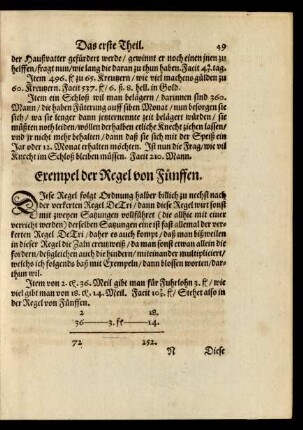 Das erste Theil. 49
der Haußvatter gefürdert werde / gewinnt er noch einen jnen zu
helffen / fragt nun / wie lang die daran zu thun haben. Facit 42. tag.
Item 496. fl zu 65. Kreutzern / wie viel machens gülden zu
60. Kreutzern. Facit 537. fl / 6. ß. 8. hell. in Gold.
Item ein Schloß wil man belägern / darinnen sind 360.
Mann / die haben Fütterung auff sieben Monat / nun besorgen sie
sich / wa sie lenger dann jetzternennte zeit belägert würden / sie
müßten noth leiden / wöllen derhalben etliche Knecht ziehen lassen /
vnd jr nicht mehr behalten / dann daß sie sich mit der Speiß ein
Jar oder 12. Monat erhalten möchten. Ist nun die Frag / wie vil
Knecht im Schloß bleiben müssen. Facit 210. Mann.
Exempel der Regel von Fünffen.
Diese Regel folgt Ordnung halber billich zu nechst nach
der verkerten Regel DeTri / dann diese Regel wirt sonst
mit zweyen Satzungen vollführet (die allhie mit einer
verricht werden) derselben Satzungen eine ist fast allemal der verker-
ten Regel DeTri / daher es auch kompt / daß man bißweilen
in dieser Regel die Zaln creutzweiß / da man sonst etwan allein die
fordern / deßgleichen auch die hindern / miteinander multiplicirt /
welchs ich folgends baß mit Exempeln / dann blossen worten / dar-
thun wil.
Item von 2. C. 36. Meil gibt man für Fuhrlohn 3. fl / wie
viel gibt man von 18. C. 14. Meil. Facit 10½. fl / Stehet also in
der Regel von Fünffen.
2 18.
36 3. fl 14.
72 252.
N Diese